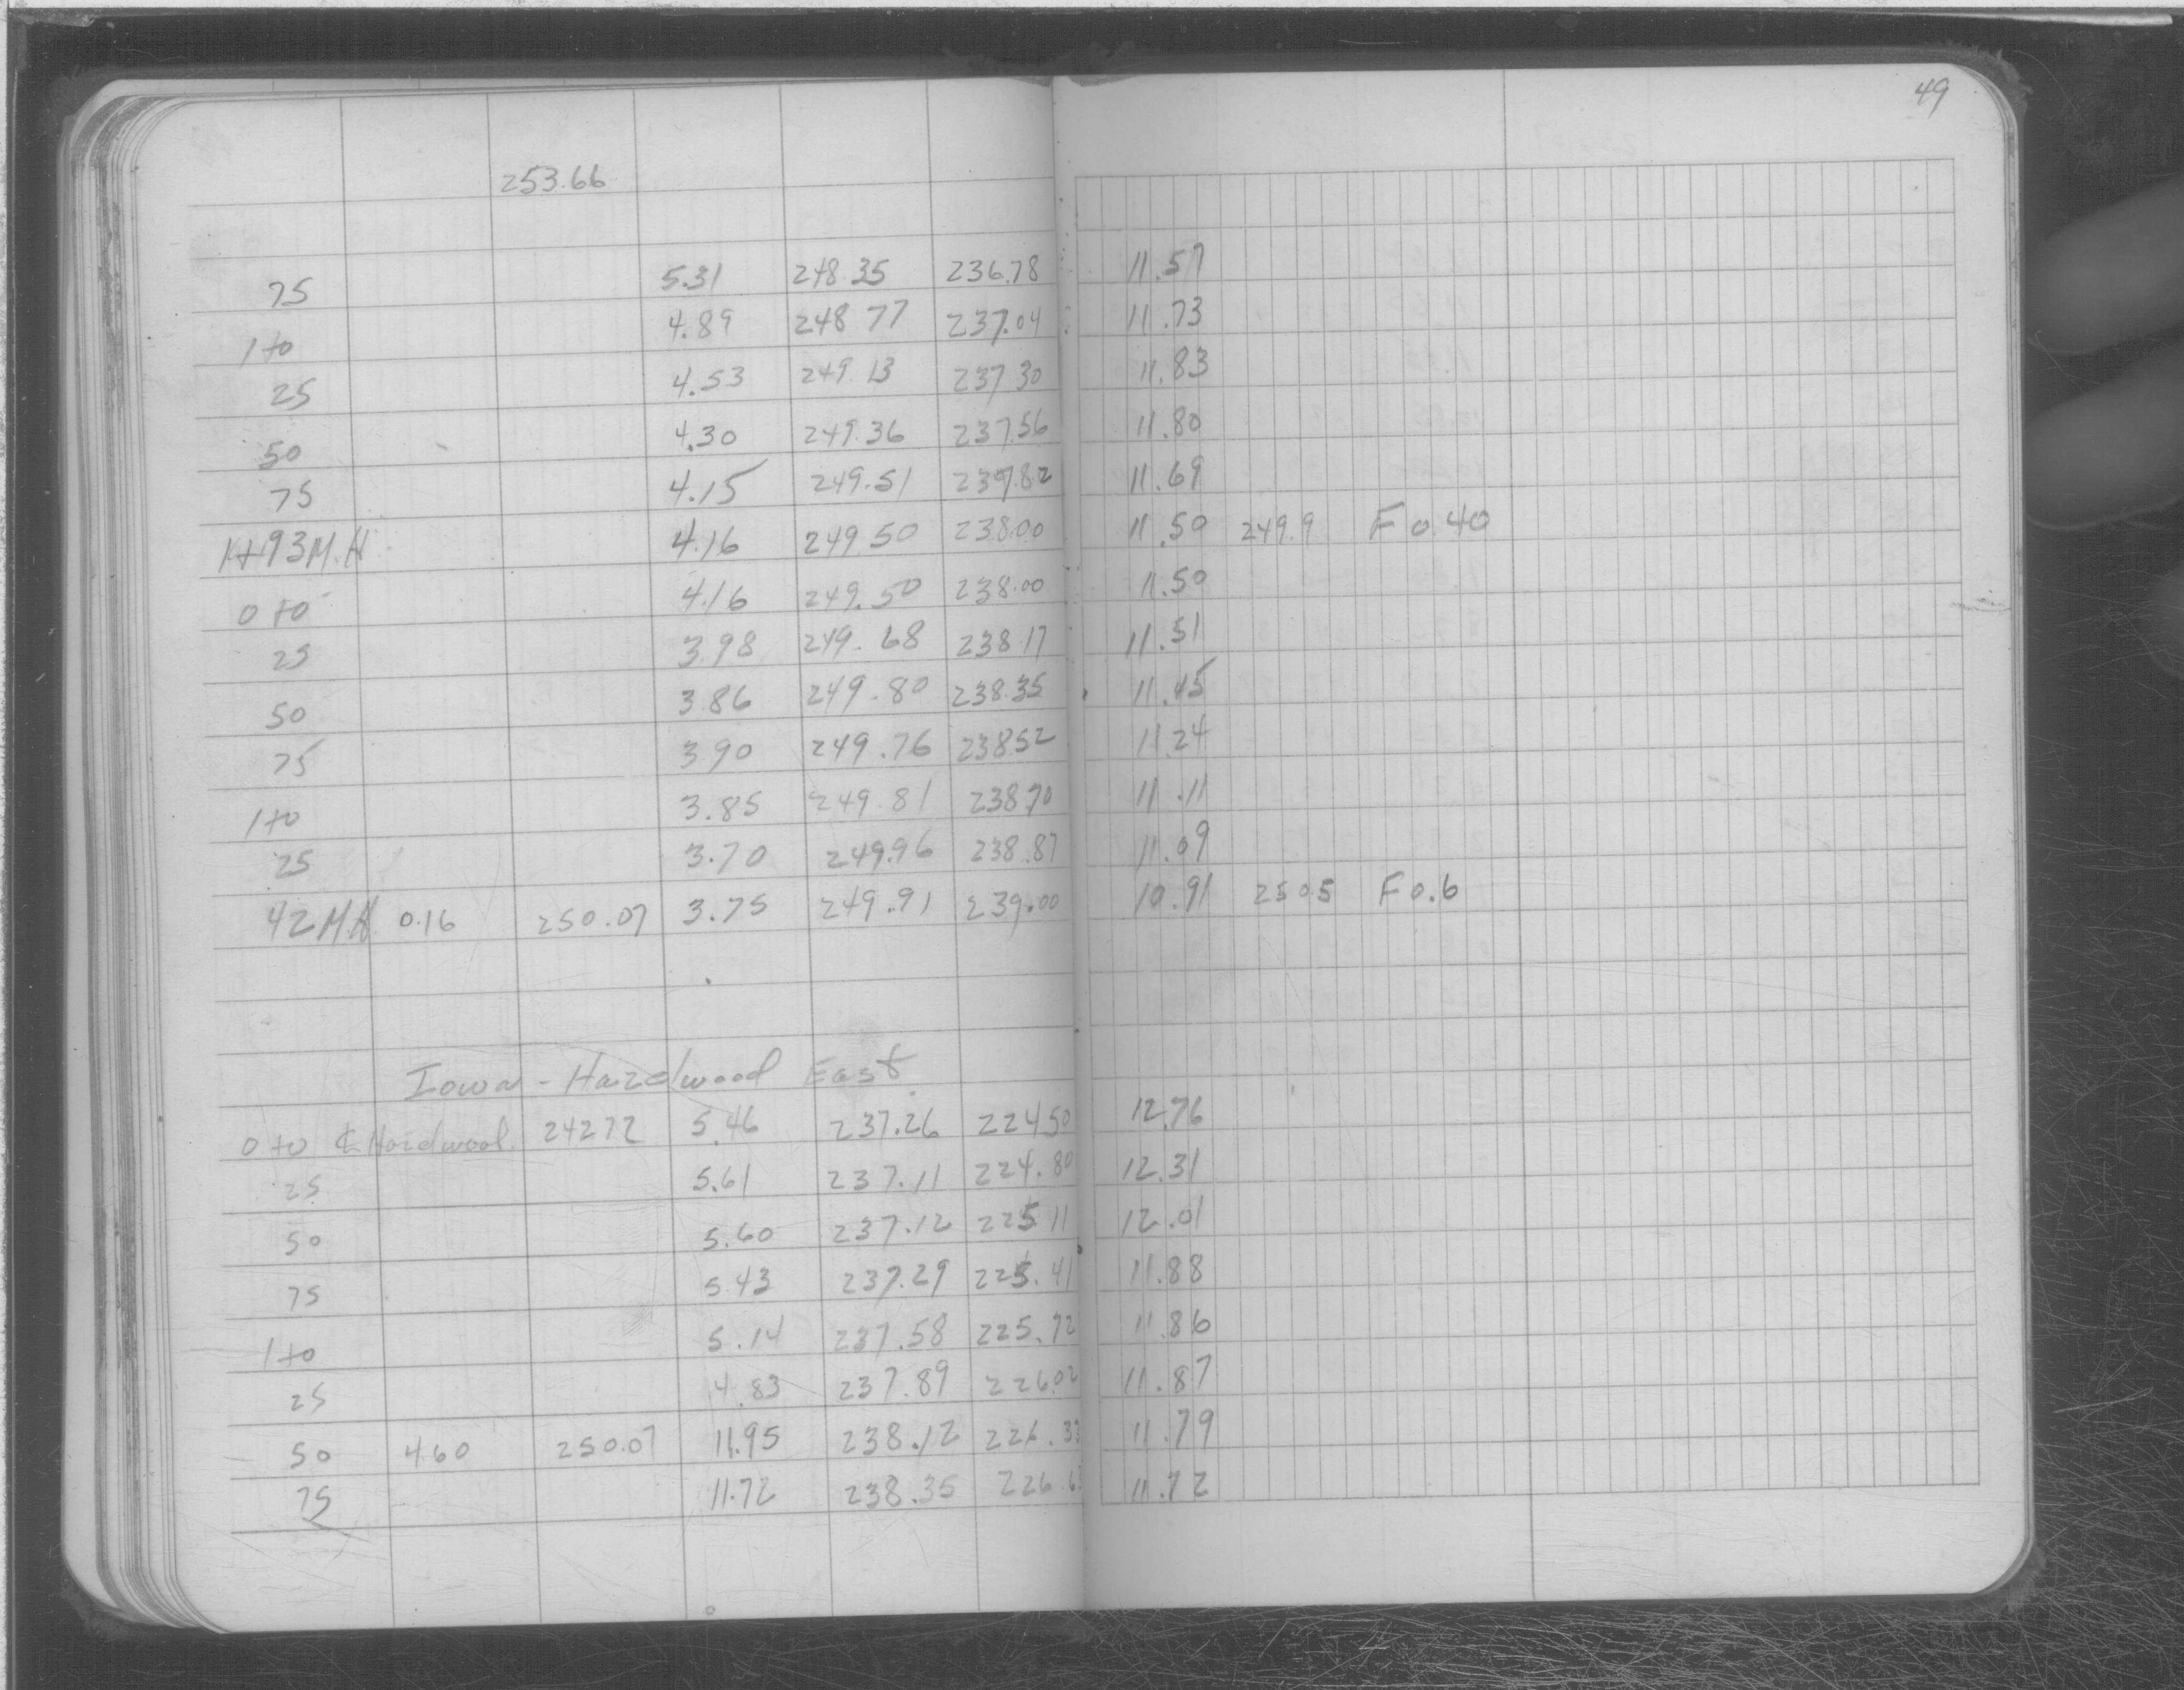 49
253.66
75 5.31 248.35 236.78 11.57
1+0 4.89 248 77 237.04 11.73
25 4.53 249.13 237 30 11.83
50 4.30 249.36 237.56 11.80
75 4.15 249.51 237.82 11.69
1+93 M.H 4.16 249 50 238.00 11.50 249.9 F 0.40
0+0 4.16 249.50 238.00 11.50
25 3.98 249.68 238.17 11.51
50 3.86 249.80 238.35 11.45
75 3.90 249.76 238.52 11.24
1+0 3.85 249.81 238.70 11.11
25 3.70 249.96 238.87 11.09
42 M.H. 0.16 250.07 3.75 249.91 239.00 10.91 250.5 F 0.6
Iowa - Hazelwood East
0+0 ℄ Hazelwood 242 72 5.46 237.26 224.50 12.76
25 5.61 237.11 224.80 12.31
50 5.60 237.12 225 11 12.01
75 5.43 237.29 225.41 11.88
1+0 5.14 237.58 225.72 11.86
25 4.83 237.89 226.02 11.87
50 4.60 250.07 11.95 238.12 226.33 11.79
75 11.72 238.35 11.72